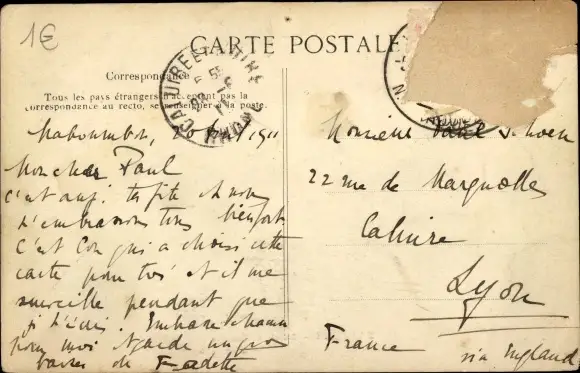 1€
CARTE POSTALE
Correspondance
Tous les pays étrangers n'acceptent pas la
correspondance au recto, se renseigner à la poste.
CALUIRE ET CUIRE
RHONE
1911
Mon cher Paul
c'est auj. ta fête et nous
t'embrassons tous bien fort
C'est Con qui a choisi cette
carte pour toi et il me
surveille pendant que
je t'écris. Embrasse
pour moi et garde un gros
baiser de Fadette
Monsieur Paul
22 rue de Margnolles
Caluire
Lyon
France
via England